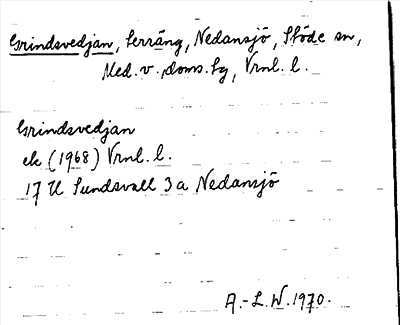 Grindsvedjan, terräng, Nedansjö, Stöde sn,
Med. v. doms. sg, Vrnl. l.
Grindsvedjan
ek (1968) Vrnl. l.
17 H Sundsvall 3 a Nedansjö
A.-L. W. 1970.